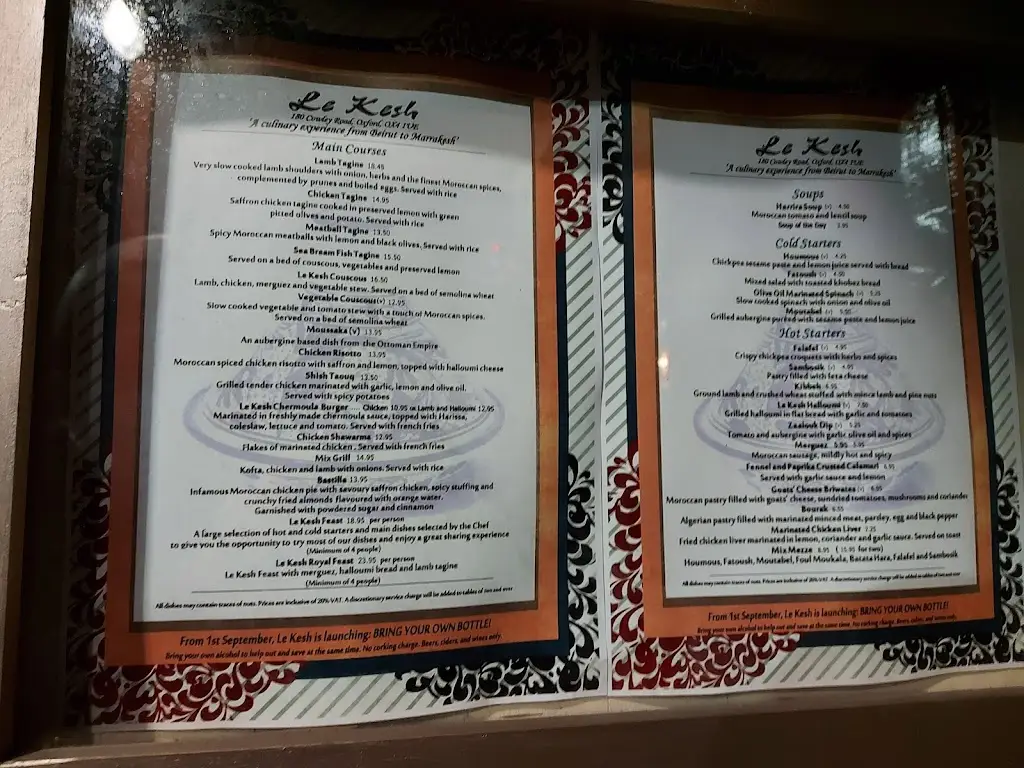 Le Kesh
180 Cowley Road, Oxford, OX4 1UE
'A culinary experience from Beirut to Marrakesh'
Main Courses
Lamb Tagine 18.45
Very slow cooked lamb shoulders with onion, herbs and the finest Moroccan spices,
complemented by prunes and boiled eggs. Served with rice
Chicken Tagine 14.95
Saffron chicken tagine cooked in preserved lemon with green
pitted olives and potato. Served with rice
Meatball Tagine 13.50
Spicy Moroccan meatballs with lemon and black olives. Served with rice
Sea Bream Fish Tagine 15.50
Served on a bed of couscous, vegetables and preserved lemon
Le Kesh Couscous 16.50
Lamb, chicken, merguez and vegetable stew. Served on a bed of semolina wheat
Vegetable Couscous(v) 12.95
Slow cooked vegetable and tomato stew with a touch of Moroccan spices.
Served on a bed of semolina wheat
Moussaka (v) 13.95
An aubergine based dish from the Ottoman Empire
Chicken Risotto 13.95
Moroccan spiced chicken risotto with saffron and lemon, topped with halloumi cheese
Shish Taouq 13.50
Grilled tender chicken marinated with garlic, lemon and olive oil.
Served with spicy potatoes
Le Kesh Chermoula Burger .... Chicken 10.95 or Lamb and Halloumi 12.95
Marinated in freshly made chermoula sauce, topped with Harissa,
coleslaw, lettuce and tomato. Served with french fries
Chicken Shawarma 12.95
Flakes of marinated chicken . Served with french fries
Mix Grill 14.95
Kofta, chicken and lamb with onions. Served with rice
Bastilla 13.95
Infamous Moroccan chicken pie with savoury saffron chicken, spicy stuffing and
crunchy fried almonds flavoured with orange water.
Garnished with powdered sugar and cinnamon
Le Kesh Feast 18.95 per person
A large selection of hot and cold starters and main dishes selected by the Chef
to give you the opportunity to try most of our dishes and enjoy a great sharing experience
(Minimum of 4 people)
Le Kesh Royal Feast 23.95 per person
Le Kesh Feast with merguez, halloumi bread and lamb tagine
(Minimum of 4 people)
All dishes may contain traces of nuts. Prices are inclusive of 20% VAT. A discretionary service charge will be added to tables of two and over
From 1st September, Le Kesh is launching: BRING YOUR OWN BOTTLE!
Bring your own alcohol to help out and save at the same time. No corking charge. Beers, ciders, and wines only.
Le Kesh
180 Cowley Road, Oxford, OX4 1UE
'A culinary experience from Beirut to Marrakesh'
Soups
Harrira Soup (v) 4.50
Moroccan tomato and lentil soup
Soup of the Day 3.95
Cold Starters
Houmous (v) 4.25
Chickpea sesame paste and lemon juice served with bread
Fatoush (v) 4.50
Mixed salad with toasted khobez bread
Olive Oil Marinated Spinach (v) 5.25
Slow cooked spinach with onion and olive oil
Moutabel (v) 5.50
Grilled aubergine puréed with sesame paste and lemon juice
Hot Starters
Falafel (v) 4.95
Crispy chickpea croquets with herbs and spices
Sambosik (v) 4.95
Pastry filled with feta cheese
Kibbeh 6.95
Ground lamb and crushed wheat stuffed with mince lamb and pine nuts
Le Kesh Halloumi (v) 7.50
Grilled halloumi in flat bread with garlic and tomatoes
Zaalouk Dip (v) 5.25
Tomato and aubergine with garlic, olive oil and spices
Merguez 5.95
Moroccan sausage, mildly hot and spicy
Fennel and Paprika Crusted Calamari 6.95
Served with garlic sauce and lemon
Goats' Cheese Briwates (v) 6.95
Moroccan pastry filled with goats' cheese, sundried tomatoes, mushrooms and coriander
Bourak 6.55
Algerian pastry filled with marinated minced meat, parsley, egg and black pepper
Marinated Chicken Liver 7.25
Fried chicken liver marinated in lemon, coriander and garlic sauce. Served on toast
Mix Mezze 8.95 ( 15.95 for two)
Houmous, Fatoush, Moutabel, Foul Moukala, Batata Hara, Falafel and Sambosik
All dishes may contain traces of nuts. Prices are inclusive of 20% VAT. A discretionary service charge will be added to tables of two and over
From 1st September, Le Kesh is launching: BRING YOUR OWN BOTTLE!
Bring your own alcohol to help out and save at the same time. No corking charge. Beers, ciders, and wines only.